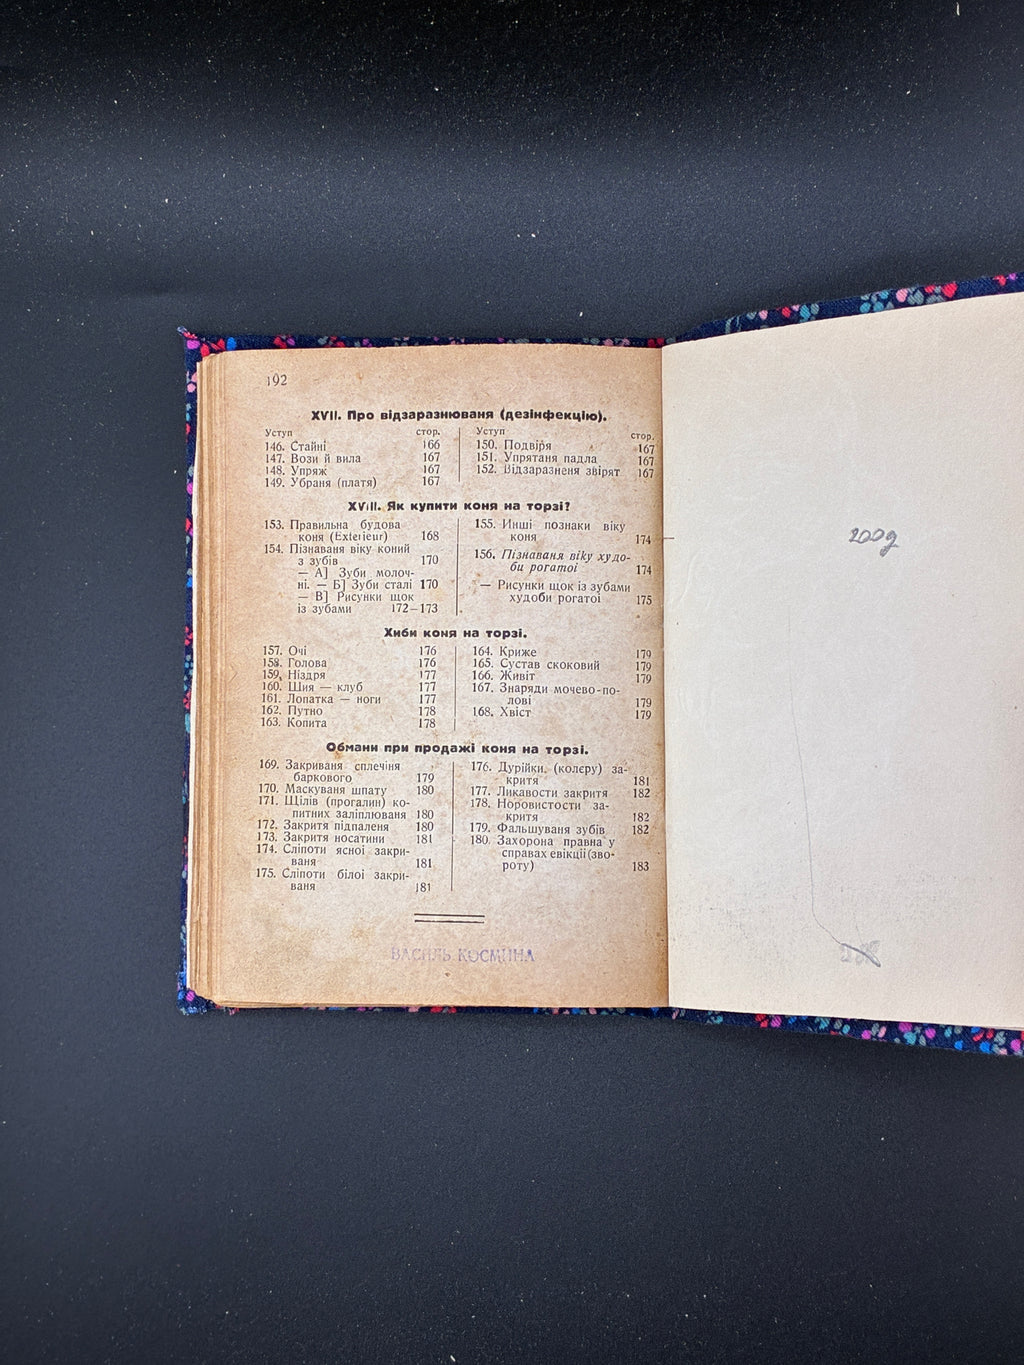 192
XVII. Про відзаразнюваня (дезінфекцію).
Уступ стор.
146. Стайні 166
147. Вози й вила 167
148. Упряж 167
149. Убраня (платя) 167
Уступ стор.
150. Подвіря 167
151. Упрятаня падла 167
152. Відзаразненя звірят 167
XVIII. Як купити коня на торзі?
153. Правильна будова
коня (Exterieur) 168
154. Пізнаваня віку коний
з зубів 170
— А] Зуби молоч-
ні. — Б] Зуби сталі 170
— В] Рисунки щок
із зубами 172—173
155. Инші познаки віку
коня 174
156. Пізнаваня віку худо-
би рогатої 174
— Рисунки щок із зубами
худоби рогатої 175
Хиби коня на торзі.
157. Очі 176
158. Голова 176
159. Ніздря 177
160. Шия — клуб 177
161. Лопатка — ноги 177
162. Путно 178
163. Копита 178
164. Криже 179
165. Сустав скоковий 179
166. Живіт 179
167. Знаряди мочево-по-
лові 179
168. Хвіст 179
Обмани при продажі коня на торзі.
169. Закриваня сплечіня
баркового 179
170. Маскуваня шпату 180
171. Щілів (прогалин) ко-
питних заліплюваня 180
172. Закритя підпаленя 180
173. Закритя носатини 181
174. Сліпоти ясної закри-
ваня 181
175. Сліпоти білої закри-
ваня 181
176. Дурійки, (колєру) за-
критя 181
177. Ликавости закритя 182
178. Норовистости за-
критя 182
179. Фальшуваня зубів 182
180. Захорона правна у
справах евікції (зво-
роту) 183
ВАСИЛЬ КОСМИНА